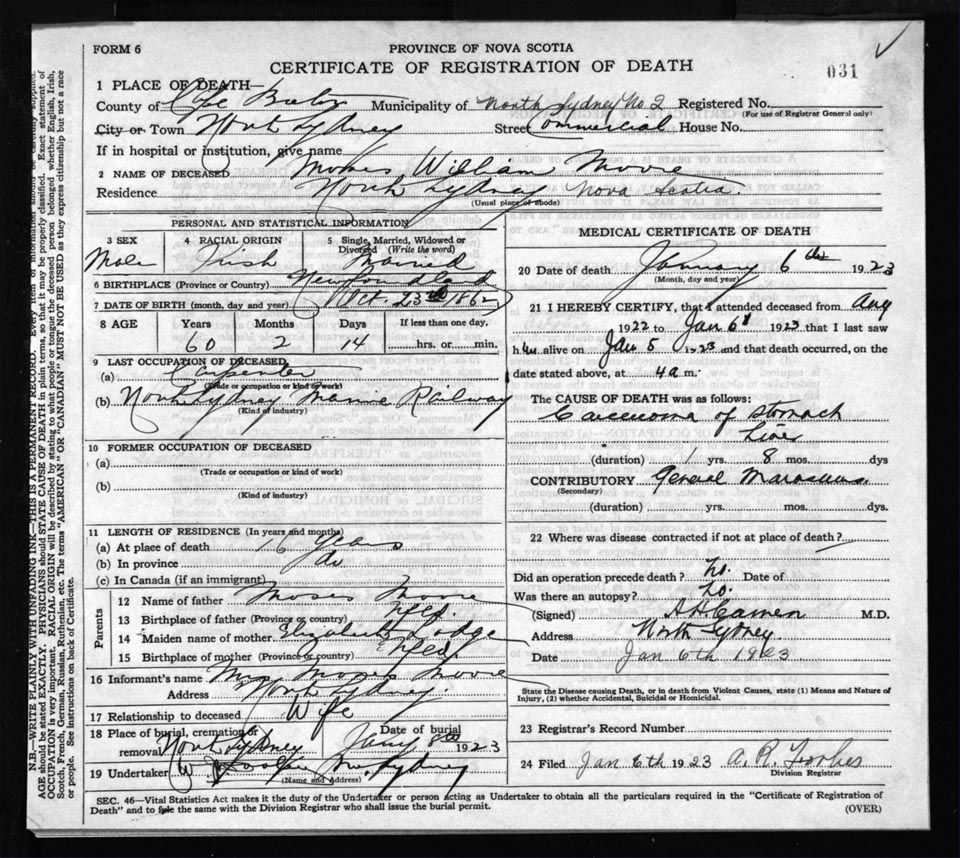 FORM 6
PROVINCE OF NOVA SCOTIA
CERTIFICATE OF REGISTRATION OF DEATH
031
1 PLACE OF DEATH
County of Cape Breton Municipality of North Sydney No. 2 Registered No.
(For use of Registrar General only)
City or Town North Sydney Street Commercial House No.
If in hospital or institution, give name
2 NAME OF DECEASED Moses William Moore
Residence North Sydney Nova Scotia.
(Usual place of abode)
PERSONAL AND STATISTICAL INFORMATION
3 SEX 4 RACIAL ORIGIN 5 Single, Married, Widowed or Divorced (Write the word)
Male Irish Married
6 BIRTHPLACE (Province or Country) Newfoundland
7 DATE OF BIRTH (month, day and year) Oct. 23rd 1862
8 AGE Years Months Days If less than one day,
60 2 14 hrs. or min.
9 LAST OCCUPATION OF DECEASED
(a) Carpenter
(Trade or occupation or kind of work)
(b) North Sydney Marine Railway
(Kind of industry)
10 FORMER OCCUPATION OF DECEASED
(a)
(Trade or occupation or kind of work)
(b)
(Kind of industry)
11 LENGTH OF RESIDENCE (In years and months)
(a) At place of death 16 years
(b) In province do
(c) In Canada (if an immigrant)
Parents
12 Name of father Moses Moore
13 Birthplace of father (Province or country) Nfld.
14 Maiden name of mother Elizabeth Dodge
15 Birthplace of mother (Province or country) Nfld.
16 Informant's name Mrs. Moses Moore
Address North Sydney.
17 Relationship to deceased Wife
18 Place of burial, cremation or removal North Sydney Date of burial Jany 8th 1923
19 Undertaker W. Sydney
(Name and Address)
MEDICAL CERTIFICATE OF DEATH
20 Date of death January 6th 1923
(Month, day and year)
21 I HEREBY CERTIFY, that I attended deceased from Aug
1922 to Jan 6th 1923 that I last saw
him alive on Jan 5 1923 and that death occurred, on the
date stated above, at 4 a m.
The CAUSE OF DEATH was as follows:
Carcinoma of Stomach
Liver
(duration) 1 yrs. 8 mos. dys
CONTRIBUTORY General Marasmus
(Secondary)
(duration) yrs. mos. dys
22 Where was disease contracted if not at place of death?
Did an operation precede death? No. Date of
Was there an autopsy? No.
(Signed) M.D.
Address North Sydney
Date Jan 6th 1923
State the Disease causing Death, or in death from Violent Causes, state (1) Means and Nature of
Injury, (2) whether Accidental, Suicidal or Homicidal.
23 Registrar's Record Number
24 Filed Jan 6th 1923 A. R. Forbes
Division Registrar
SEC. 46—Vital Statistics Act makes it the duty of the Undertaker or person acting as Undertaker to obtain all the particulars required in the "Certificate of Registration of
Death" and to file the same with the Division Registrar who shall issue the burial permit. (OVER)
N.B.—WRITE PLAINLY WITH UNFADING INK—THIS IS A PERMANENT RECORD. Every item of information should be carefully supplied.
AGE should be stated EXACTLY. PHYSICIANS should STATE CAUSE OF DEATH in plain terms, so that it may be properly classified. Exact statement of
OCCUPATION is very important. RACIAL ORIGIN will be described by stating to what people or tongue the deceased person belonged whether English, Irish,
Scotch, French, German, Russian, Ruthenian, etc. The terms "AMERICAN" OR "CANADIAN" MUST NOT BE USED as they express citizenship but not a race
or people. See instructions on back of Certificate.